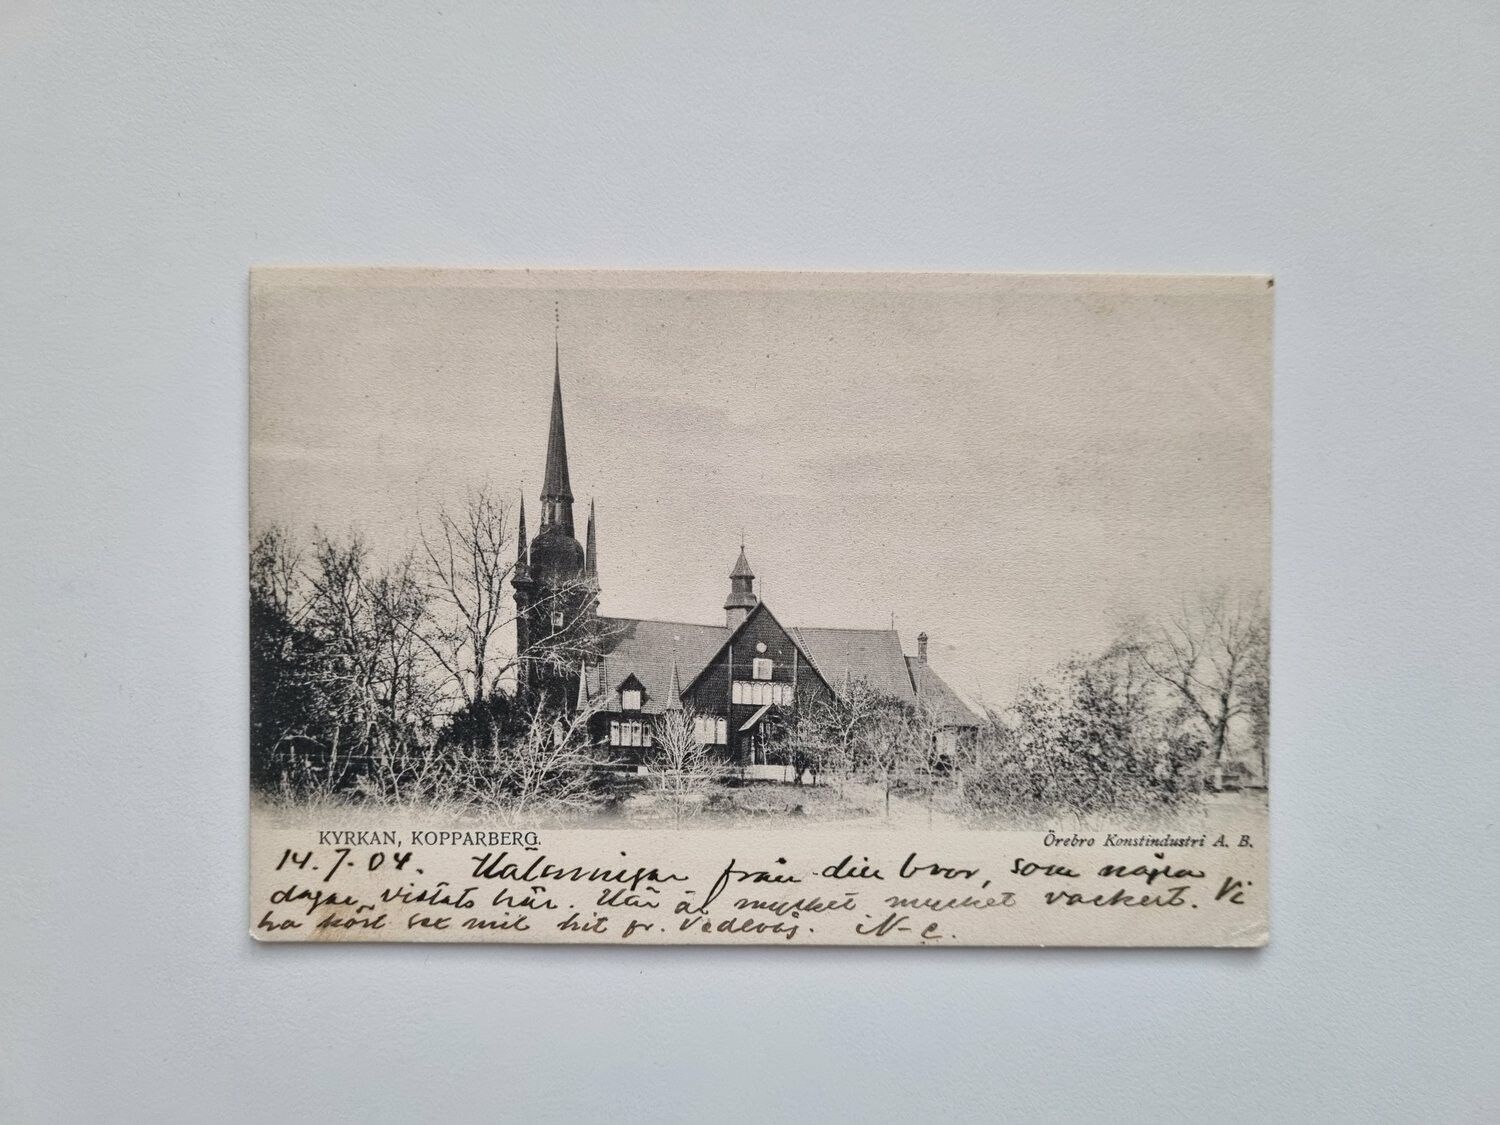 KYRKAN, KOPPARBERG.
Örebro Konstindustri A. B.
14.7.04. Hälsningar från din bror, som några
dagar vistats här. Här är mycket mycket vackert. Vi
ha kört sex mil hit fr. Vedevåg. N-e.